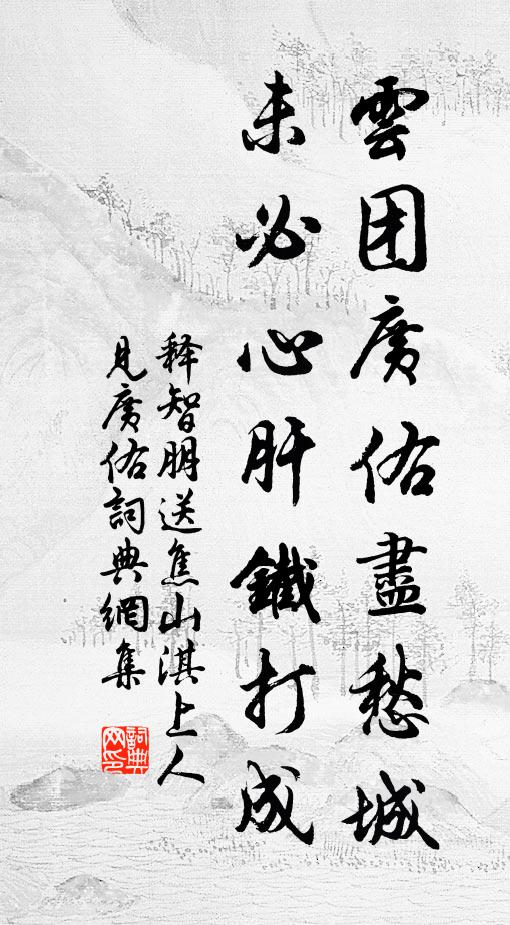 雲团廣佑盡愁城
未必心肝鐵打成
释智朋送焦山淇上人
見廣佑詞典網集
詞典网印